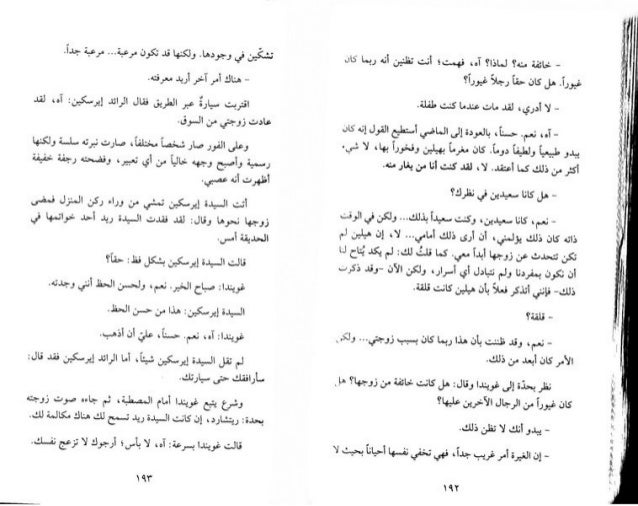 - خائفة منه؟ لماذا؟ آه، فهمت؛ أنت تظنين أنه ربما كان
غيوراً. هل كان حقاً رجلاً غيوراً؟
- لا أدري، لقد مات عندما كنت طفلة.
- آه، نعم. حسناً، بالعودة إلى الماضي أستطيع القول إنه كان
يبدو طبيعياً ولطيفاً دوماً. كان مغرماً بهيلين وفخوراً بها، لا شيء
أكثر من ذلك كما أعتقد. لا، لقد كنت أنا من يغار منه.
- هل كانا سعيدين في نظرك؟
- نعم، كانا سعيدين، وكنت سعيداً بذلك... ولكن في الوقت
ذاته كان ذلك يؤلمني، أن أرى ذلك أمامي... لا، إن هيلين لم
تكن تتحدث عن زوجها أبداً معي. كما قلتُ لك: لم يكد يُتاح لنا
أن نكون بمفردنا ولم نتبادل أي أسرار، ولكن الآن -وقد ذكرت
ذلك- فإنني أتذكر فعلاً بأن هيلين كانت قلقة.
- قلقة؟
- نعم، وقد ظننت بأن هذا ربما كان بسبب زوجتي... ولكن
الأمر كان أبعد من ذلك.
نظر بحدّة إلى غويندا وقال: هل كانت خائفة من زوجها؟ هل
كان غيوراً من الرجال الآخرين عليها؟
- يبدو أنك لا تظن ذلك.
- إن الغيرة أمر غريب جداً، فهي تخفي نفسها أحياناً بحيث لا
١٩٢
تشكّين في وجودها. ولكنها قد تكون مرعبة... مرعبة جداً.
- هناك أمر آخر أريد معرفته.
اقتربت سيارةٌ عبر الطريق فقال الرائد إيرسكين: آه، لقد
عادت زوجتي من السوق.
وعلى الفور صار شخصاً مختلفاً، صارت نبرته سلسة ولكنها
رسمية وأصبح وجهه خالياً من أي تعبير، وفضحته رجفة خفيفة
أظهرت أنه عصبي.
أتت السيدة إيرسكين تمشي من وراء ركن المنزل فمضى
زوجها نحوها وقال: لقد فقدت السيدة ريد أحد خواتمها في
الحديقة أمس.
قالت السيدة إيرسكين بشكل فظ: حقاً؟
غويندا: صباح الخير. نعم، ولحسن الحظ أنني وجدته.
السيدة إيرسكين: هذا من حسن الحظ.
غويندا: آه، نعم. حسناً، عليّ أن أذهب.
لم تقل السيدة إيرسكين شيئاً، أما الرائد إيرسكين فقد قال:
سأرافقك حتى سيارتك.
وشرع يتبع غويندا أمام المصطبة، ثم جاءه صوت زوجته
بحدة: ريتشارد، إن كانت السيدة ريد تسمح لك هناك مكالمة لك.
قالت غويندا بسرعة: آه، لا بأس؛ أرجوك لا تزعج نفسك.
١٩٣